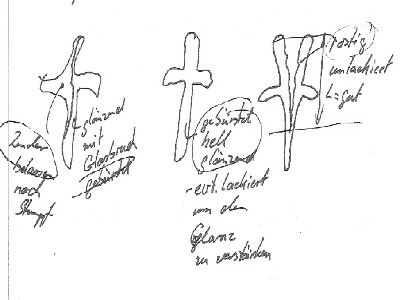 glänzend
mit
gebürstet
nach
Stumpf
gebürstet
hell
glänzend
- evt. lackiert
um den
Glanz
zu verstärken
rostig
unlackiert
L = gut